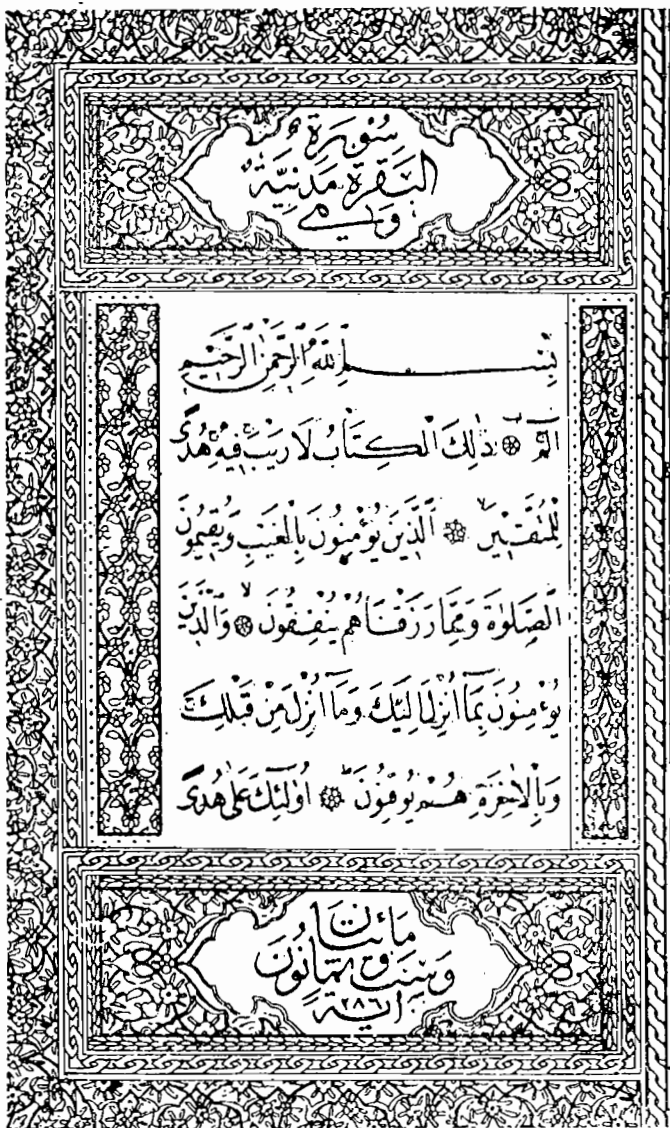 سُورَةُ
الْبَقَرَةِ مَدَنِيَّةٌ
وَهِيَ
بِسْمِ اللّٰهِ الرَّحْمٰنِ الرَّحٖيمِ
الٓمٓ ۝ ذٰلِكَ الْكِتَابُ لَا رَيْبَۚ فٖيهِۚ هُدًى
لِلْمُتَّقٖينَۙ ۝ اَلَّذٖينَ يُؤْمِنُونَ بِالْغَيْبِ وَيُقٖيمُونَ
الصَّلٰوةَ وَمِمَّا رَزَقْنَاهُمْ يُنْفِقُونَۙ ۝ وَالَّذٖينَ
يُؤْمِنُونَ بِمَٓا اُنْزِلَ اِلَيْكَ وَمَٓا اُنْزِلَ مِنْ قَبْلِكَۚ
وَبِالْاٰخِرَةِ هُمْ يُوقِنُونَۜ ۝ اُولٰٓئِكَ عَلٰى هُدًى
مَائَتَانِ
وَسِتٌّ وَثَمَانُونَ
٢٨٦ اٰيَةً